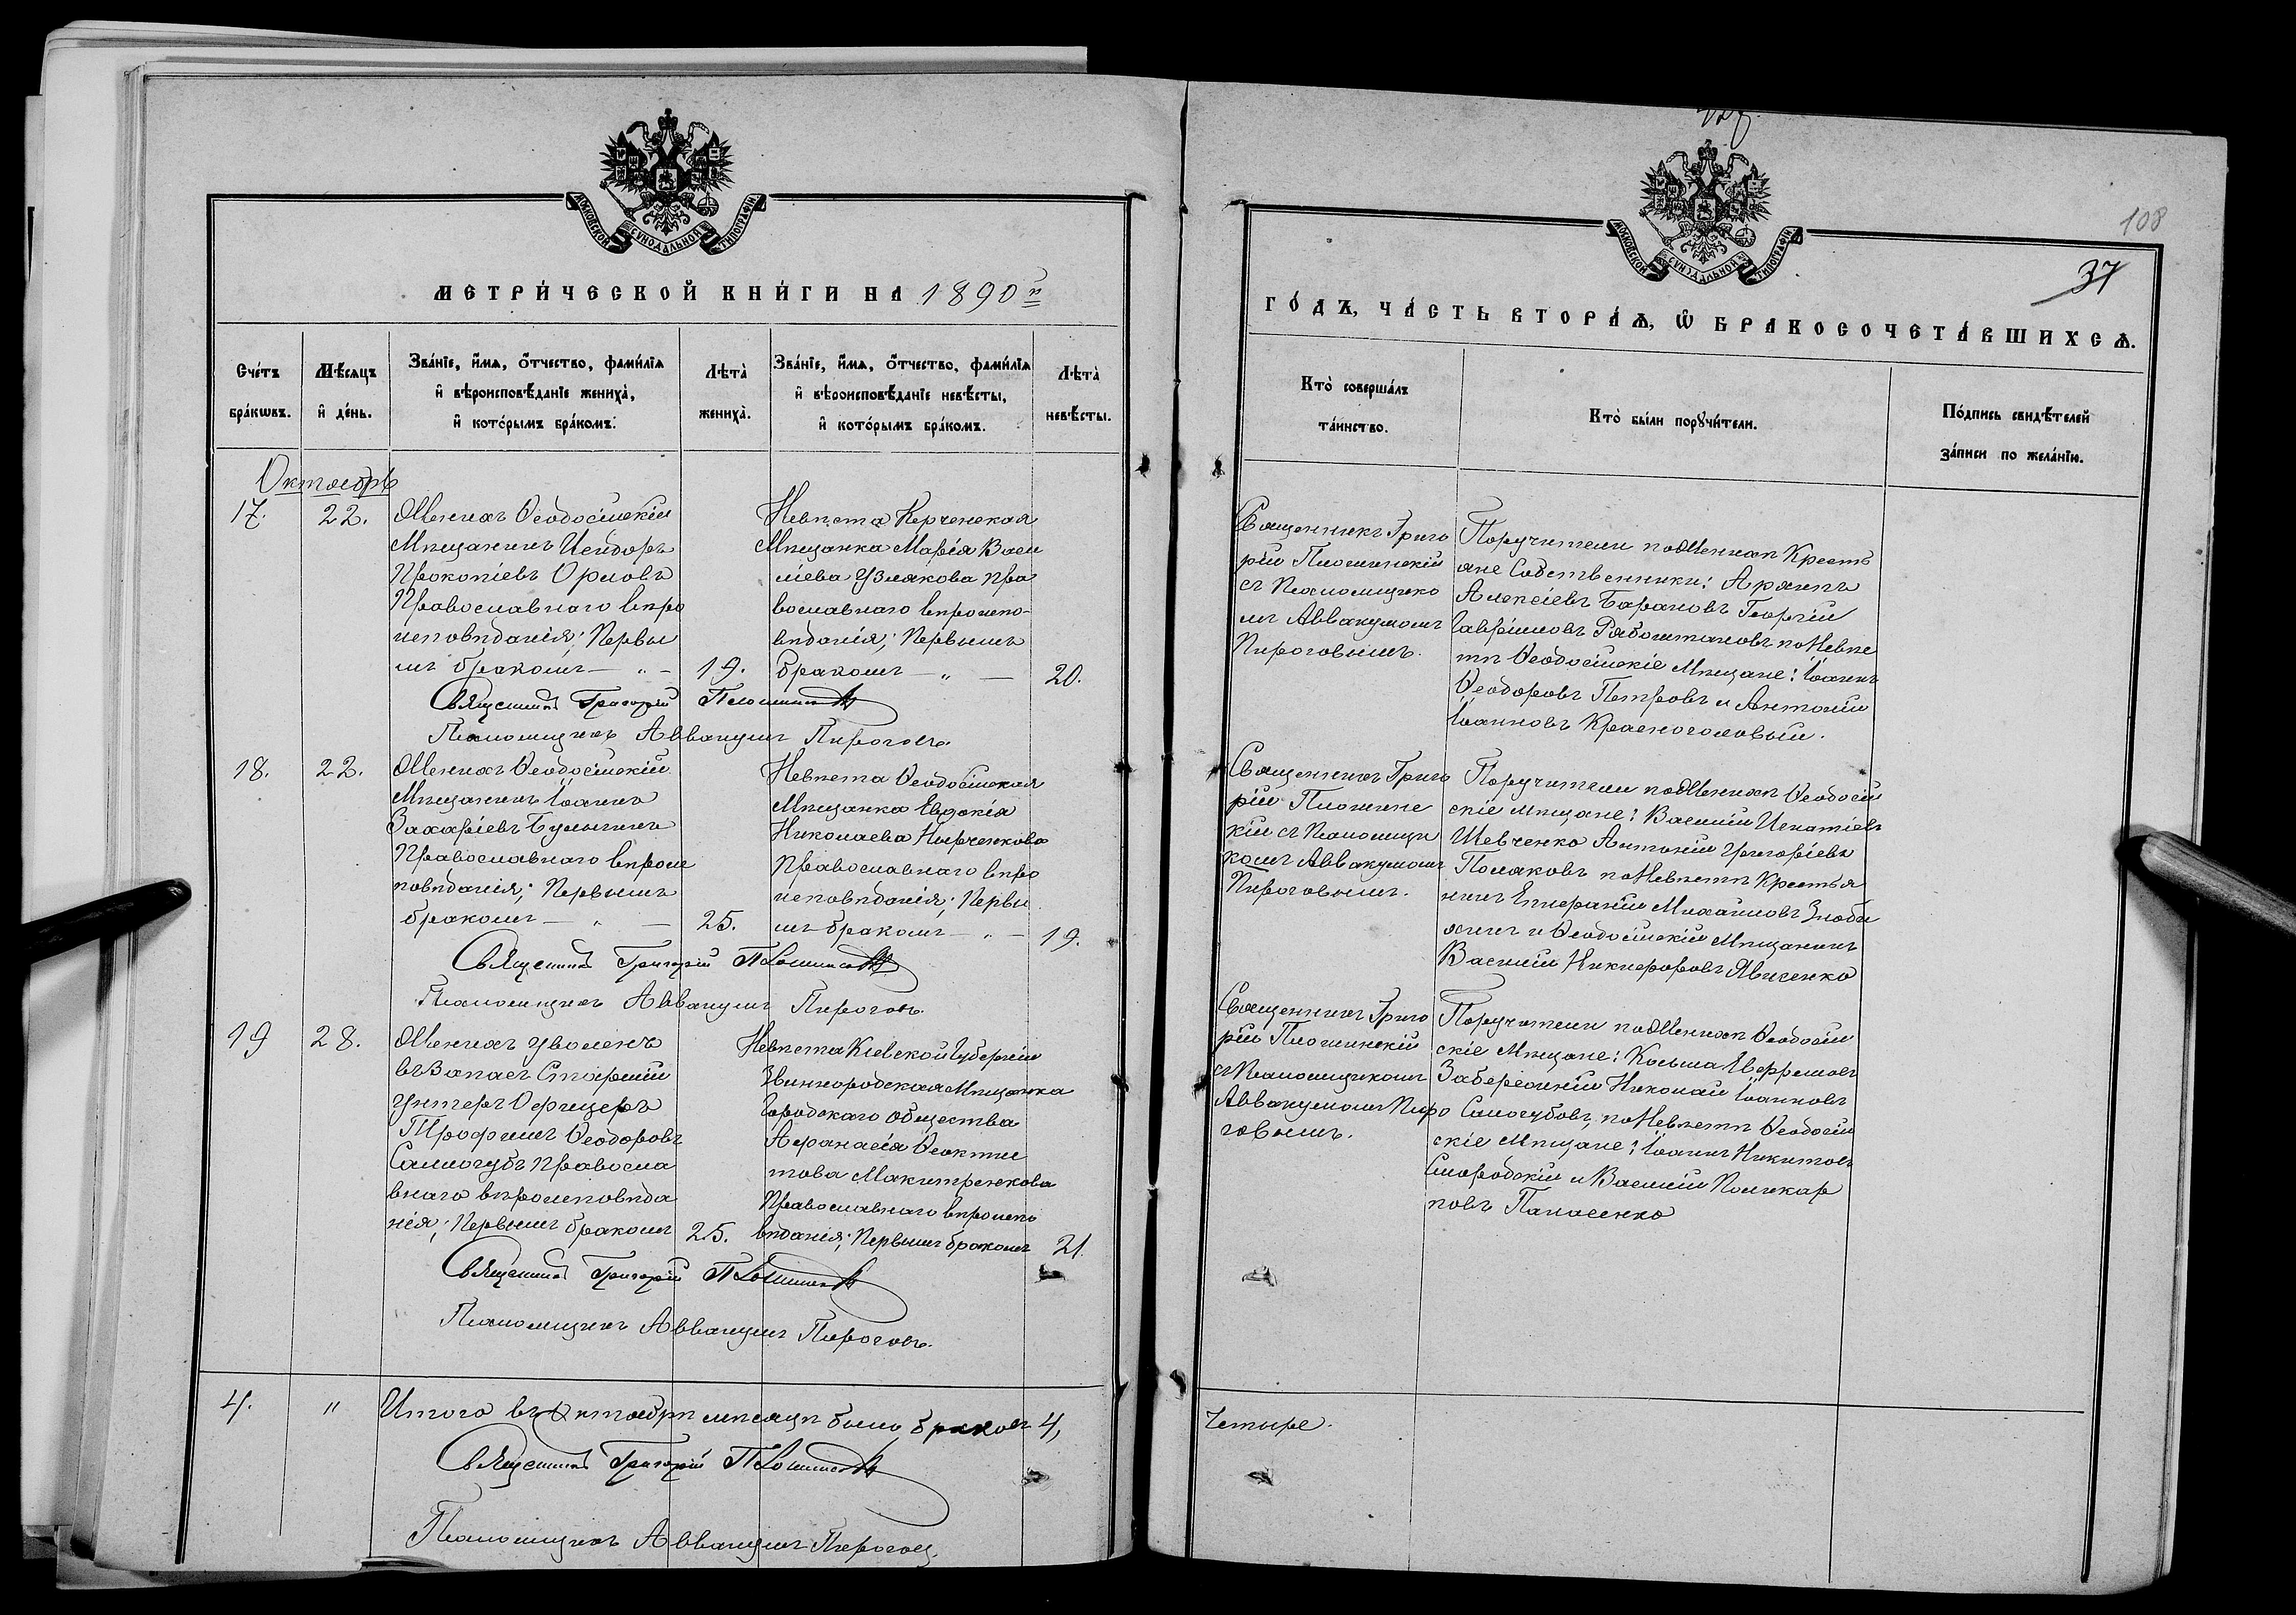 МОСКОВСКОЙ СУНОДАЛЬНОЙ ТИПОГРАФІИ
МЕТРИ́ЧЕСКОЙ КНИ́ГИ НА 1890й
Сче́тъ бра́кωвъ.
Мѣ́сяцъ и҆ де́нь.
Зва́нїе, и҆́мѧ, ѻ҆́тчество, фами́лїѧ
и҆ вѣроисповѣ́данїе жениха̀,
и҆ кото́рымъ бра́комъ.
Лѣта̀ жениха̀.
Зва́нїе, и҆́мѧ, ѻ҆́тчество, фами́лїѧ
и҆ вѣроисповѣ́данїе невѣ́сты,
и҆ кото́рымъ бра́комъ.
Лѣта̀ невѣ́сты.
Октябрь
17.
22.
Женихъ Ѳеодосійскій
Мѣщанинъ Исидоръ
Прокопіевъ Орловъ
Православнаго вѣро
исповѣданія; Первы
мъ бракомъ — „ —
19.
Невѣста Керченская
Мѣщанка Марія Васи
ліева Узлякова Пра
вославнаго вѣроиспо-
вѣданія; Первымъ
бракомъ — „ —
20.
Священникъ Григорій
Псаломщикъ Аввакумъ Пироговъ.
18.
22.
Женихъ Ѳеодосійскій
Мѣщанинъ Іоаннъ
Захаріевъ Булыгинъ
Православнаго вѣрои
повѣданія; Первымъ
бракомъ — „ —
25.
Невѣста Ѳеодосійская
Мѣщанка Евдокія
Николаева Нырченкова
Православнаго вѣро
исповѣданія; Первы
мъ бракомъ — „ —
19.
Священникъ Григорій
Псаломщикъ Аввакумъ Пироговъ.
19
28.
Женихъ уволенъ
въ Запасъ Старшій
Унтеръ Офицеръ
Трофимъ Ѳеодоровъ
Самогубъ Правосла
внаго вѣроисповѣда
нія; Первымъ бракомъ
25.
Невѣста Кіевской Губерніи
Звингородская Мѣщанка
Городскаго Общества
Аѳанасія Ѳеоктис
това Макитренкова
Православнаго вѣроиспо
вѣданія; Первымъ бракомъ
21.
Священникъ Григорій
Псаломщикъ Аввакумъ Пироговъ.
4.
„
Итого въ Октябрѣ мѣсяцѣ было браковъ 4,
Священникъ Григорій
Псаломщикъ Аввакумъ Пироговъ.
108
37
МОСКОВСКОЙ СУНОДАЛЬНОЙ ТИПОГРАФІИ
ГО́ДЪ, ЧА́СТЬ ВТОРА́Ѧ, Ѽ БРАКОСОЧЕТА́ВШИХСѦ.
Кто̀ соверша́лъ
та́инство.
Кто̀ бы́ли порꙋчи́тели.
По́дпись свидѣ́телей
за́писи по жела́нїю.
Священникъ Григо
рій Плошинскій
съ Псаломщико
мъ Аввакумомъ
Пироговымъ.
Поручители по Женихѣ Кресть
яне Собственники: Архипъ
Алексіевъ Барановъ Георгій
Гавріиловъ Рябоштановъ по Невѣс
тѣ Ѳеодосійскіе Мѣщане: Іоаннъ
Ѳеодоровъ Петровъ и Антоній
Іоанновъ Красноголовый.
Священникъ Григо
рій Плошинс
кій съ Псаломщи
комъ Аввакумомъ
Пироговымъ.
Поручители по Женихѣ Ѳеодосій
скіе Мѣщане: Василій Игнатіевъ
Шевченко Антоній Григоріевъ
Поляковъ по Невѣстѣ Крестья
нинъ Епифаній Михаиловъ Знобы
хинъ и Ѳеодосійскій Мѣщанинъ
Василій Никифоровъ Явиченко
Священникъ Григо
рій Плошинскій
съ Псаломщикомъ
Аввакумомъ Пиро
говымъ.
Поручители по Женихѣ Ѳеодосій
скіе Мѣщане: Косьма Ефремовъ
Забережній Николай Іоанновъ
Самогубовъ, по Невѣстѣ Ѳеодосій
скіе Мѣщане: Іоаннъ Никитовъ
Смородскій и Василій Поликар
повъ Панасенко
Четыре.